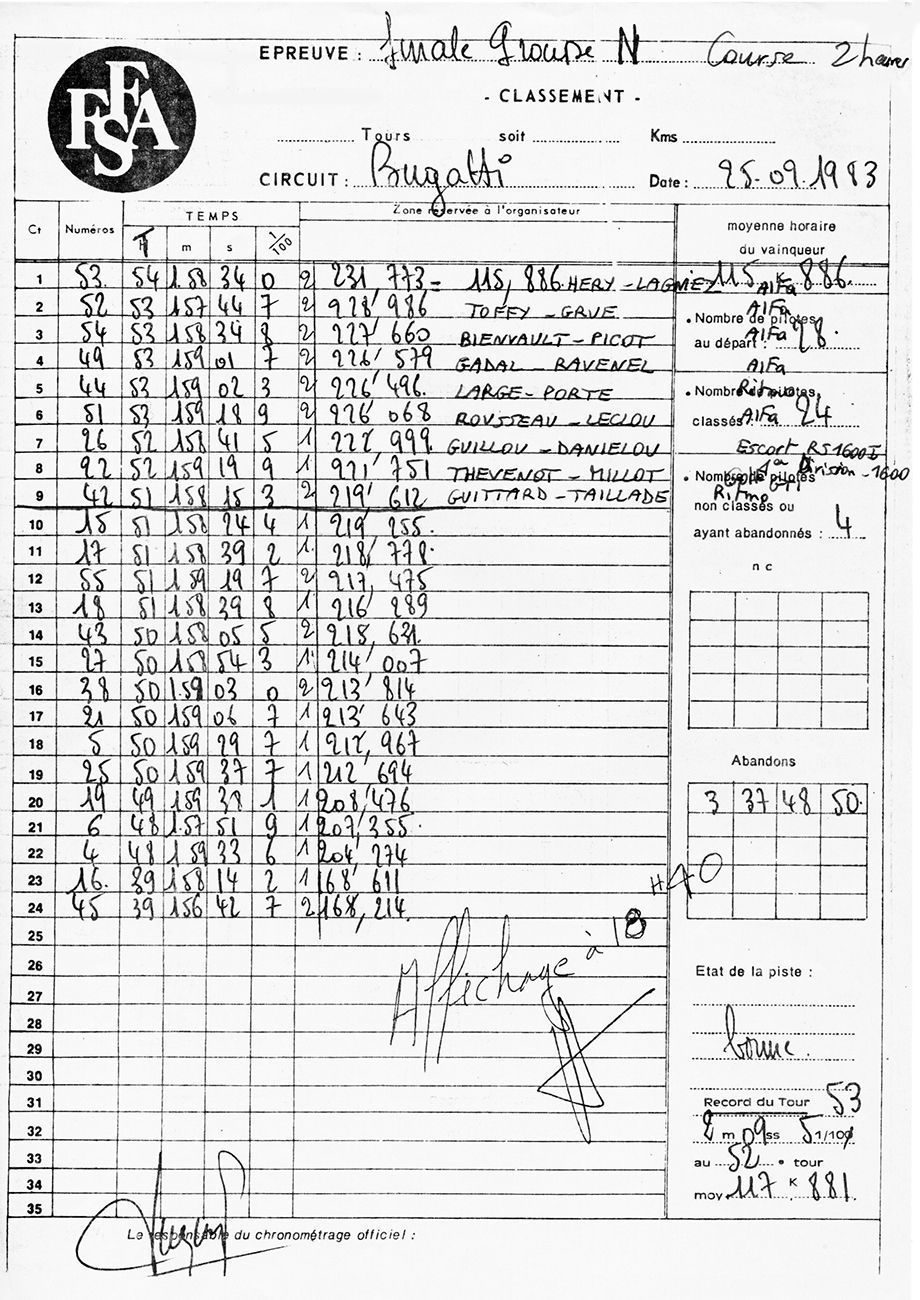 FFSA
EPREUVE : finale Groupe N Course 2 heures
- CLASSEMENT -
Tours soit Kms
CIRCUIT : Bugatti Date : 25.09.1983
Ct Numéros TEMPS T m s 1/100 Zone réservée à l'organisateur
1 53 54 158 34 0 2 231,773 = 115,886 HERY - LAGNIEZ Alfa
2 52 53 157 44 7 2 228,986 TOFFY - GRUE Alfa
3 54 53 158 34 8 2 227,660 BIENVAULT - PICOT Alfa
4 49 53 159 01 7 2 226,579 GADAL - RAVENEL Alfa
5 44 53 159 02 3 2 226,496 LARGE - PORTE Ritmo
6 51 53 159 18 9 2 226,068 ROUSSEAU - LECLOU Alfa
7 26 52 158 41 5 1 222,999 GUILLOU - DANIELOU Escort RS 1600 I
8 22 52 159 19 9 1 221,751 THEVENOT - MILLOT Division - 1600
9 42 51 158 15 3 2 219,612 GUITTARD - TAILLADE Ritmo
10 15 51 158 24 4 1 219,255
11 17 51 158 39 2 1 218,778
12 55 51 159 19 7 2 217,475
13 18 51 158 39 8 1 216,289
14 43 50 158 05 5 2 218,631
15 27 50 158 54 3 1 214,007
16 38 50 159 03 0 2 213,814
17 21 50 159 06 7 1 213,643
18 5 50 159 29 7 1 212,967
19 25 50 159 37 7 1 212,694
20 19 49 159 38 1 1 208,476
21 6 48 157 51 9 1 207,355
22 4 48 159 33 6 1 204,274
23 16 39 158 14 2 1 168,611
24 45 39 156 42 7 2 168,214
25
26
27
28
29
30
31
32
33
34
35
Affichage à 18 H 40
moyenne horaire
du vainqueur
115 K 886
• Nombre de pilotes
au départ : 28
• Nombre de pilotes
classés : 24
• Nombre de pilotes
non classés ou
ayant abandonnés : 4
n c
Abandons
3 37 48 50
Etat de la piste :
bonne
Record du Tour 53
2 m 09 ss 5 1/100
au 52 • tour
moy 117 K 881
Le responsable du chronométrage officiel :